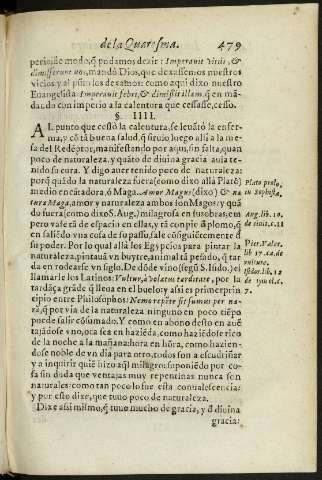 de la Quaresma. 479
peticiõ de modo, q̃ podamos dezir: Imperauit vitiis, &
dimisserunt nos, mandò Dios, que dexassemos nuestros
vicios y al pũto los dexamos: como aqui dixo nuestro
Euangelista Imperauit febri, & dimisit illam, q̃ en mã-
dando con imperio a la calentura que cessasse, cesso.
§ IIII.
AL punto que cessò la calentura, se leuãtò la enfer-
ma, y cõ tã buena salud, q̃ siruio luego alli a la me-
sa del Redẽptor, manifestando por aqui, sin falta, quan
poco de naturaleza, y quãto de diuina gracia auia teni-
do su cura. Y digo auer tenido poco de naturaleza:
porq̃ quãdo la naturaleza fuera (como dixo allà Platõ)
medio encãtadora, ò Maga. Amor Magus (dixo) & na-
tura Maga, amor y naturaleza ambos son Magos: y quã
do fuera (como dixo S. Aug.) milagrosa en sus obras; em
pero vase tã de espacio en ellas, y tã con pie d̃ plomo, q̃
en saliẽdo vna cosa de su passo, sale cõsiguiẽtemente d̃
su poder. Por lo qual allà los Egypcios para pintar la
naturaleza, pintauã vn buytre, animal tã pesado, q̃ tar
da en rodearse vn siglo. De dõde vino (segũ S. Isido.) el
llamarle los Latinos: Vultur, à volatu tarditate, por la
tardãça grãde q̃ lleua en el buelo: y assi es primer prin
cipio entre Philosophos: Nemo repẽte fit sumus per na-
rã, q̃ por via de la naturaleza ninguno en poco tiẽpo
puede salir cõsumado. Y como en abono desto en auẽ
tajãdose vno, ora sea en haziẽda, como haziẽdose rico
de la noche a la mañana: hora en hõra, como hazien-
dose noble de vn dia para otro, todos son a escudriñar
y a inquirir que hizo aq̃l milagro: suponiẽdo por co-
sa sin duda que ventajas muy repentinas nunca son
naturales: como tan poco lo fue esta conualescencia:
y por esto dixe, que tuuo poco de naturaleza.
Dixe assi mismo, q̃ tuuo mucho de gracia, y d̃ diuina
gracia:
Plato
in
Aug. lib. 10.
de ciuit. c. 11
Pier. Valer.
lib 17. ca. de
vulture.
Isidor. lib. 12
7.